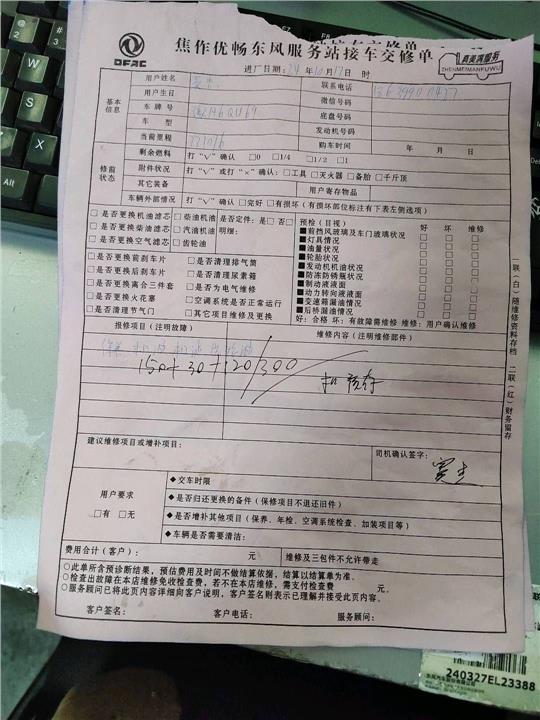 DFAC
焦作优畅东风服务站接车交修单
真美满服务
ZHENMEIMANFUWU
进厂日期: 24 年 10 月 17 日 时
基本信息
用户姓名 联系电话
用户生日 微信号码
车牌号 底盘号码
车型 发动机号码
当前里程 购车时间 年 月 日
修前状态
剩余燃料 打“√”确认 □0 □1/4 □1/2 □1
附件状况 打“√”或打“×”确认:□工具 □灭火器 □备胎 □千斤顶
其它装备 用户寄存物品
车辆外部情况 打“√”确认 □完好 □有损坏(有损坏部位标注有下表左侧选项)
□是否更换机油滤芯 □柴油机油 是否定件: 是□ 否□
□是否更换柴油滤芯 □汽油机油 明细:
□是否更换空气滤芯 □齿轮油
□是否更换前刹车片 □是否清理排气筒
□是否更换后刹车片 □是否清理尿素箱
□是否更换离合三件套 □是否为电气维修
□是否更换火花塞 □空调系统是否正常运行
□是否清理节气门 □其它项目维修及更换
预检(目视) 好 坏 维修
■前挡风玻璃及车门玻璃状况 □ □ □
■灯具情况 □ □ □
■油量状况 □ □ □
■轮胎状况 □ □ □
■发动机机油状况 □ □ □
■防冻防锈瓶状况 □ □ □
■制动液液面 □ □ □
■动力转向液液面 □ □ □
■变速箱漏油情况 □ □ □
■后桥漏油情况 □ □ □
好:合格 坏:有故障需维修 维修:用户确认维修
报修项目(注明故障) 维修内容(注明维修部件)
150+30+120/300
建议维修项目或增补项目:
司机确认签字:
用户要求
□有 □无
◆交车时限
◆是否归还更换的备件(保修项目不退还旧件)
◆是否增补其他项目(保养、年检、空调系统检查、加装项目等)
◆车辆是否需要清洁:
费用合计(客户): 元 维修及三包件不允许带走
○此单所含预诊断结果,预估费用及时间不做结算依据,结算以结算单为准。
○检查出故障在本店维修免收检查费,若不在本店维修,需支付检查费 元。
○服务顾问已将此页内容详细向客户说明,客户签名则表示已理解并接受此页内容。
客户签名: 客户电话: 服务顾问:
一联(白)随维修资料存档 二联(红)财务留存
240327EL23388